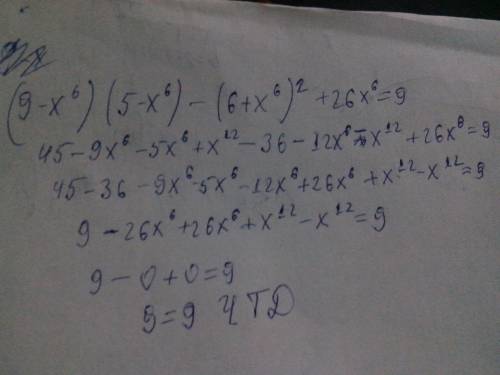 (9-x⁶)(5-x⁶)-(6+x⁶)²+26x⁶=9
45-9x⁶-5x⁶+x¹²-36-12x⁶-x¹²+26x⁶=9
45-36-9x⁶-5x⁶-12x⁶+26x⁶+x¹²-x¹²=9
9-26x⁶+26x⁶+x¹²-x¹²=9
9-0+0=9
9=9 ЧТД